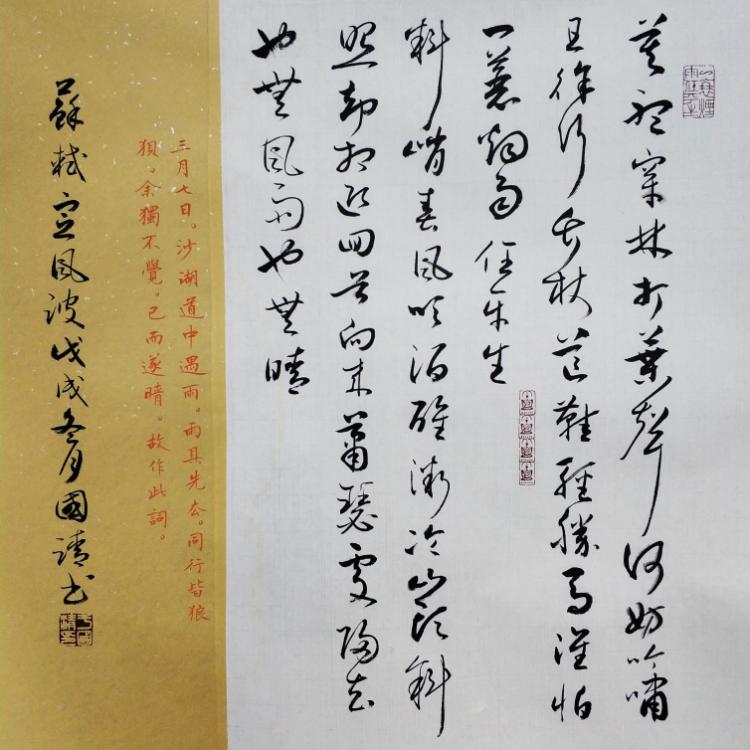 莫聽穿林打葉聲何妨吟嘯
且徐行竹杖芒鞋輕勝馬誰怕
一蓑煙雨任平生
料峭春風吹酒醒微冷山頭斜
照却相迎回首向來蕭瑟處歸去
也無風雨也無晴
三月七日。沙湖道中遇雨。雨具先去。同行皆狼
狽。余獨不覺。已而遂晴。故作此詞。
蘇軾定風波戊戌冬月國靖書